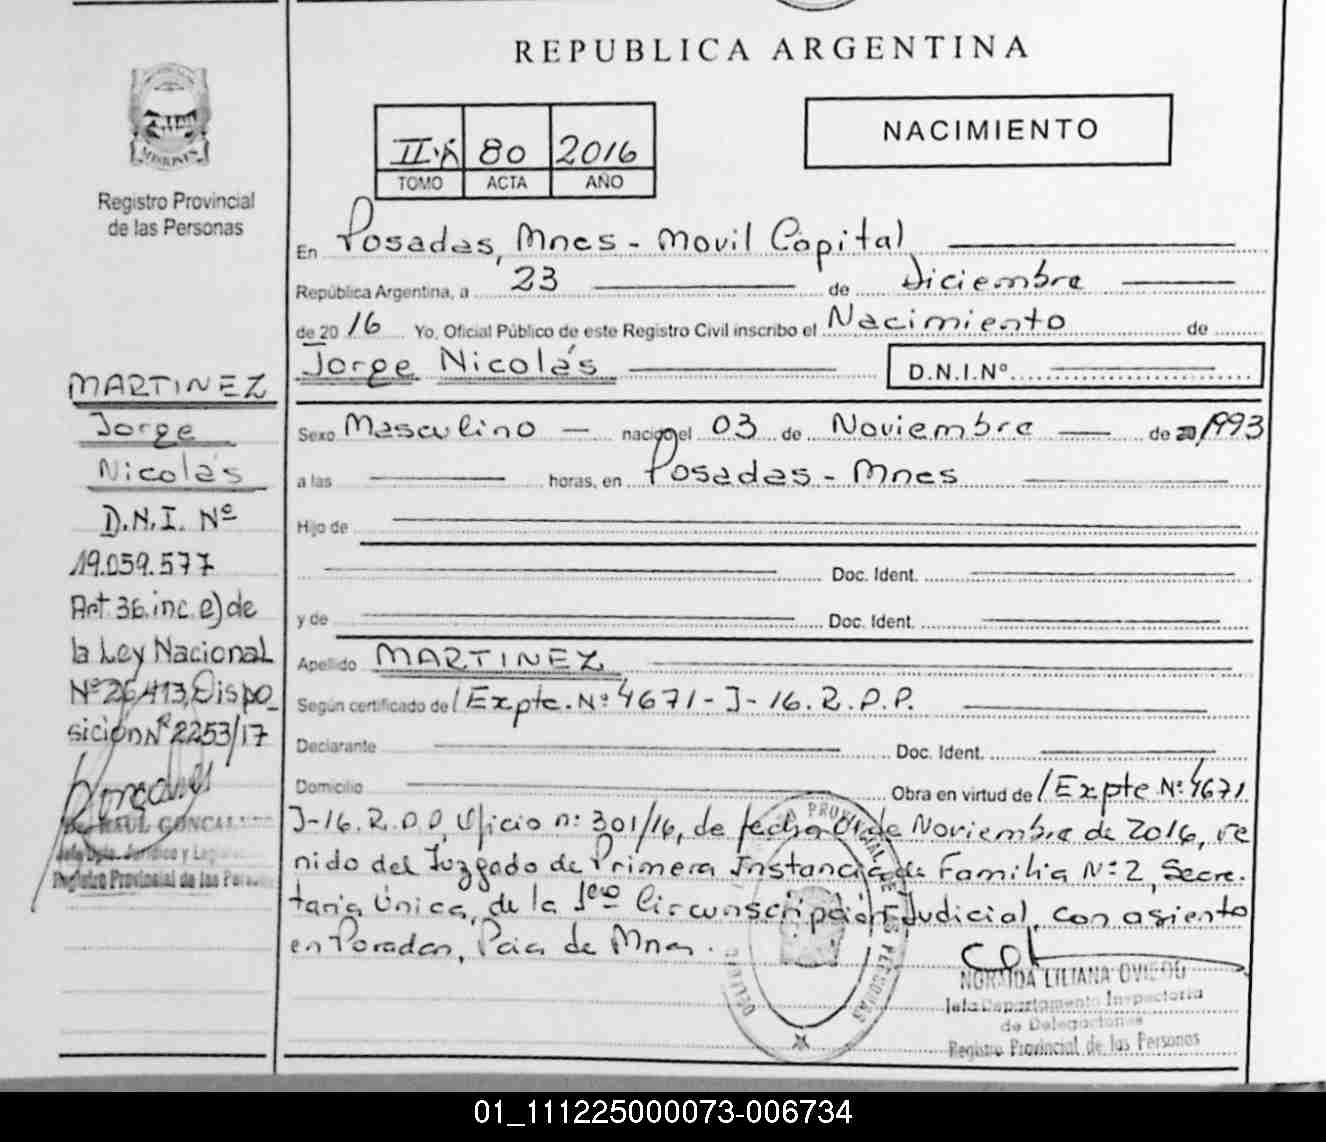 REPUBLICA ARGENTINA
MISIONES
Registro Provincial
de las Personas
80 2016
TOMO ACTA AÑO
NACIMIENTO
En Posadas, Mnes - Movil Capital
República Argentina, a 23 de Diciembre
de 2016 Yo, Oficial Público de este Registro Civil inscribo el Nacimiento de
Jorge Nicolás D.N.I.Nº
Sexo Masculino nacido el 03 de Noviembre de 1993
a las horas, en Posadas - Mnes
Hijo de
Doc. Ident.
y de Doc. Ident.
Apellido MARTINEZ
Según certificado de / Expte. Nº 4671-J-16.R.P.P.
Declarante Doc. Ident.
Domicilio Obra en virtud de / Expte Nº 4671
J-16.R.P.P, Oficio nº 301/16, de fecha 01 de Noviembre de 2016, ve
nido del Juzgado de Primera Instancia de Familia Nº 2, Secre.
taria Única, de la 1era Circunscripción Judicial, con asiento
en Posadas, Pcia de Mnes.
MARTINEZ
Jorge
Nicolás
D.N.I. Nº
19.059.577
Art. 36. inc. e) de
la Ley Nacional
Nº 26.413, Dispo_
sición Nº 2253/17
RAUL
Jefe Dpto. Jurídico y
Registro Provincial de las Personas
PROVINCIAL DE LAS PERSONAS
NORMIDA LILIANA OVIEDO
Jefa Departamento Inspectoria
de Delegaciones
Registro Provincial de las Personas
01_111225000073-006734